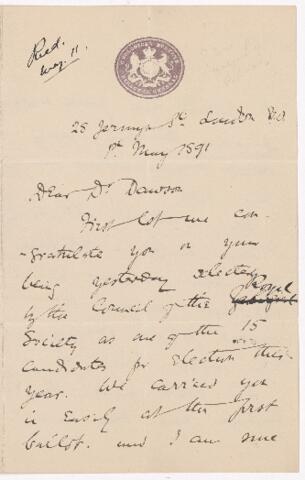 Recd.
May. 11.
28 Jermyn St. London S.W.
1st May 1891
Dear Dr Dawson
First let me con-
-gratulate you on your
being yesterday selected
by the Council of the Royal
Society as one of the 15
candidates for election this
year. We carried you
in easily at the first
ballot. and I am sure